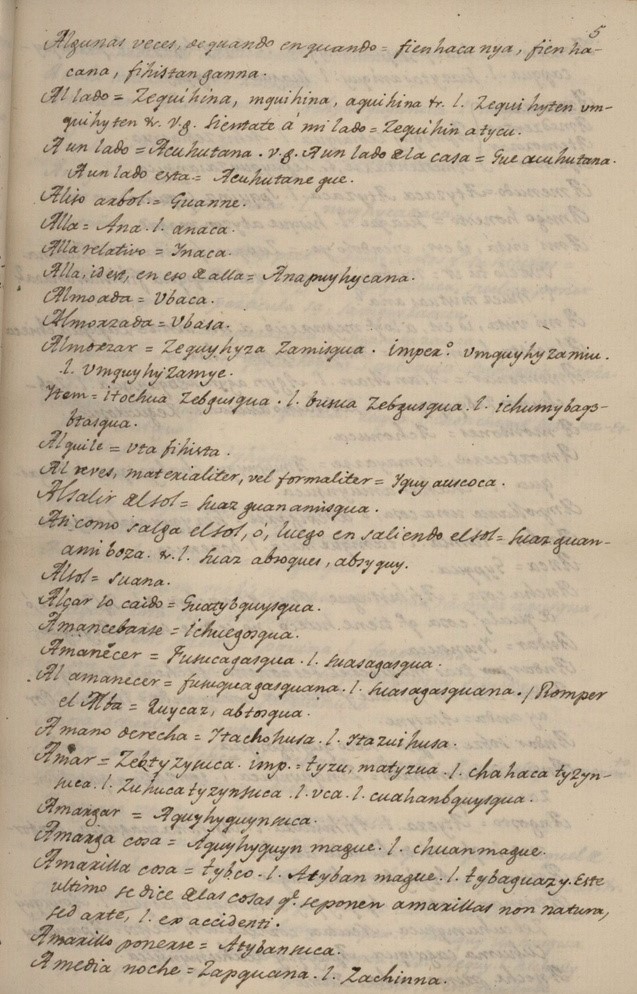 5
Algunas veces, de quando en quando = fienhacanya, fien ha-
cana, fihistan ganna.
Al lado = Zequihina, mquihina, aquihina &r. l. Zequi hyten vm-
quihyten &. V.g. Sientate á mi lado = Zequihin atycu.
A un lado = Acuhutana. v.g. A un lado de la casa = Gue acuhutana.
A un lado esta = Acuhutane gue.
Aliso arbol = Guanne.
Alla = Ana. l. anaca.
Alla relativo = Ynaca.
Alla, id est, en eso de alla = Anapuyhycana.
Almoada = Vbaca.
Almorzada = Vbasa.
Almorzar = Zequyhyza Zamisqua. imper.º vmquyhyzamiu.
l. vmquyhyzamye.
Ytem = itochua Zebgusqua. l. busua Zebgusqua. l. ichumybags-
btasqua.
Alquile = vta fihista.
Al reves, materialiter, vel formaliter = Yquy auscoca.
Al salir del sol = suaz guanamisqua.
Asi como salga el sol, ó, luego en saliendo el sol = suaz guan-
amiboza. &. l. suaz absoques, absyquy.
Al sol = suana.
Alçar lo caido = Guatybquysqua.
Amancebarse = ichuegosqua.
Amanecer = Fusucagasqua. l. suasagasqua.
Al amanecer = fusuquagasquana. l. suasagasquana. / Romper
el Alba = Quycaz, abtosqua.
A mano derecha = Ytachohusa. l. Ytazuihusa.
Amar = Zebtyzysuca. imp. = tyzu, matyzua. l. chahaca tyzyn-
suca. l. Zuhuca tyzynsuca. l. vca. l. cuahanbquysqua.
Amargar = Aquyhyquynsuca.
Amarga cosa = Aquyhyquyn mague. l. chuanmague.
Amarilla cosa = tybco. l. Atyban mague. l. tybaguazy. Este
ultimo se dice de las cosas q.e se ponen amarillas non natura,
sed arte, l. ex accidenti.
Amarillo ponerse = Atybansuca.
A media noche = Zapquana. l. Zachinna.